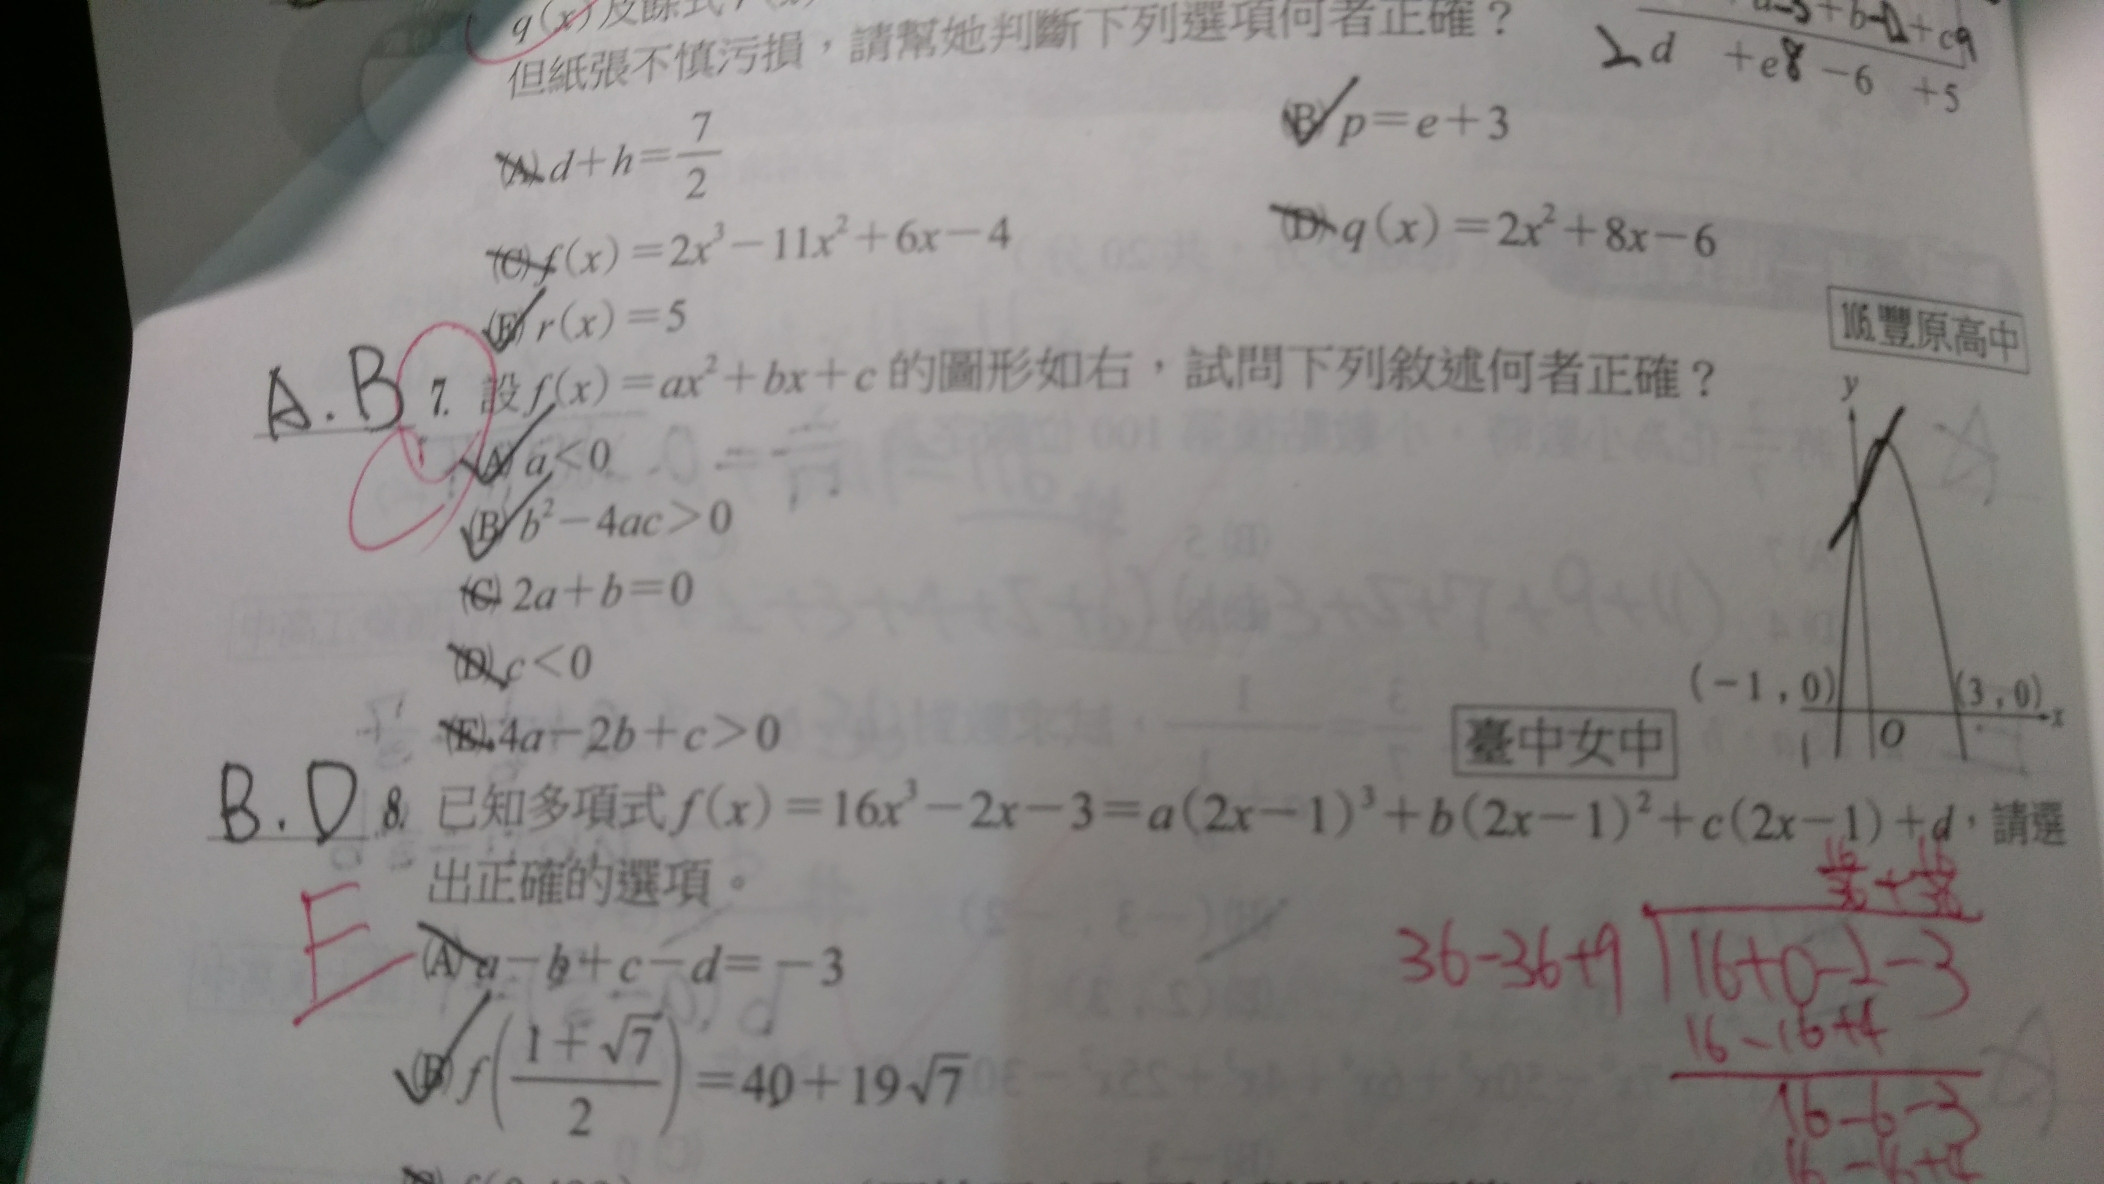 q(x)及餘式
a-3+b-12+c9
但紙張不慎污損，請幫她判斷下列選項何者正確？
2d +e8 -6 +5
(A) d+h=7/2 (B) p=e+3
(C) f(x)=2x³-11x²+6x-4 (D) q(x)=2x²+8x-6
(E) r(x)=5
105.豐原高中
A.B 7. 設 f(x)=ax²+bx+c 的圖形如右，試問下列敘述何者正確？
(A) a<0
(B) b²-4ac>0
(C) 2a+b=0
(D) c<0
(E) 4a-2b+c>0
臺中女中
y
(-1,0)
(3,0)
x
O
B.D 8. 已知多項式 f(x)=16x³-2x-3=a(2x-1)³+b(2x-1)²+c(2x-1)+d，請選
出正確的選項。
E
(A) a-b+c-d=-3
(B) f((1+√7)/2)=40+19√7
16/36+16/36
36-36+9
16+0-2-3
16-16+4
16-6-3